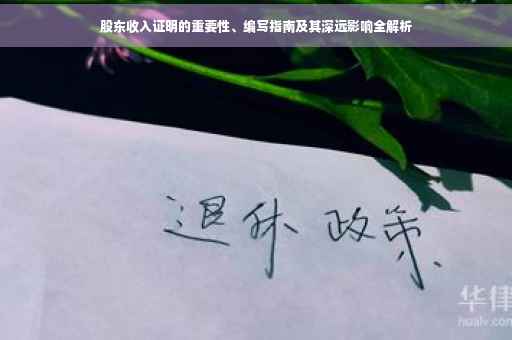 股东收入证明的重要性、编写指南及其深远影响全解析
退休 政策
华律
hualv.